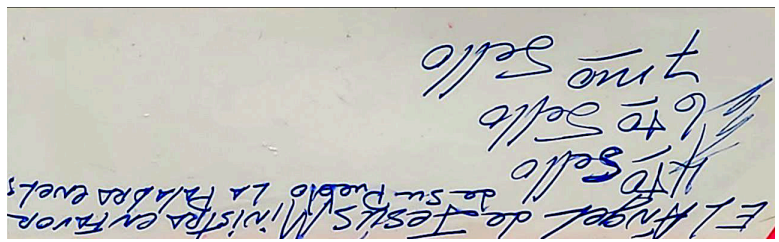 EL Ángel de Jesús Ministra en Favor
de su Pueblo LA PALABRA en el
4to Sello
6to Sello
7mo Sello